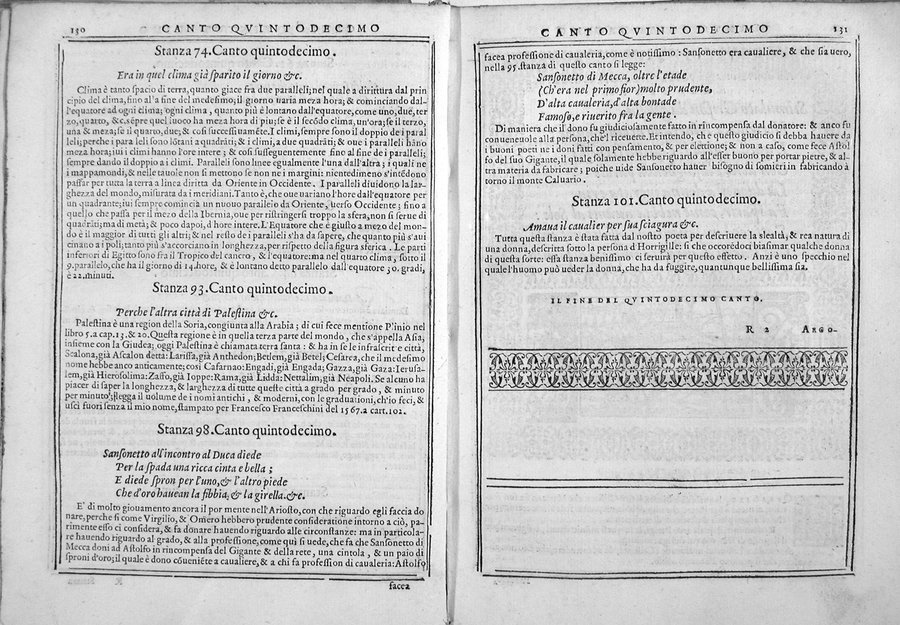 130 CANTO QVINTODECIMO
Stanza 74. Canto quintodecimo.
Era in quel clima già sparito il giorno &c.
Clima è tanto spacio di terra, quanto giace fra due paralleli; nel quale a dirittura dal prin
cipio del clima, fino al'a fine del medesimo, il giorno varia meza hora; & cominciando dal-
l'equatore ad ogni clima; ogni clima, quanto più è lontano dall'equatore, come uno, due, ter
zo, quarto, &c. sépre quel luoco ha meza hora di piu; se è il secódo clima, un'ora; se il terzo,
una & meza; se il quarto, due; & cosi successiuaméte. I climi, sempre sono il doppio de i paral
leli; perche i para leli sono lótani a quadráti; & i climi, a due quadráti; & oue i paralleli háno
meza hora; iui i climi hanno l'ore intere; & cosi susseguentemente fino al fine de i paralleli;
sempre dando il doppio a i climi. Paralleli sono linee egualmente l'una dall'altra; i quali ne
i mappamondi, & nelle tauole non si mettono se non ne i margini: nientedimeno s'intédono
passar per tutta la terra a linea diritta da Oriente in Occidente. I paralleli diuidono la lar-
ghezza del mondo, misurata da i meridiani. Tanto è, che oue uariano l'hore dall'equatore per
un quadrante; iui sempre comincia un nuouo parallelo da Oriente, uerso Occidente; fino a
quello che passa per il mezo della Ibernia, oue per ristringersi troppo la sfera, non si serue di
quadráti; ma di metà; & poco dapoi, d'hore intere. L'Equatore che è giusto a mezo del mon-
do è il maggior di tutti gli altri; & nel resto de i paralleli s'ha da sapere, che quanto più s'aui
cinano a i poli; tanto più s'accorciano in longhezza, per rispetto della figura sferica. Le parti
inferiori di Egitto sono fra il Tropico del cancro, & l'equatore: ma nel quarto clima, sotto il
9. parallelo, che ha il giorno di 14. hore, & è lontano detto parallelo dall'equatore 30. gradi,
è 22. minuti.
Stanza 93. Canto quintodecimo.
Perche l'altra città di Palestina &c.
Palestina è una region della Soria, congiunta alla Arabia; di cui fece mentione Plinio nel
libro 5. a cap. 13. & 20. Questa regione è in quella terza parte del mondo, che s'appella Asia,
insieme con la Giudea; oggi Palestina è chiamata terra santa: & ha in se le infrascrit e città,
Scalona, già Ascalon detta: Larissa, già Anthedon; Betlem, già Betel; Cesarea, che il medesimo
nome hebbe anco anticamente; cosi Cafarnao: Engadi, già Engada; Gazza, già Gaza: Ierusa-
lem, già Hierosolima: Zaffo, già Ioppe: Rama, già Lidda: Nettalim, già Neapoli. Se alcuno ha
piacer di saper la longhezza, & larghezza di tutte queste città a grado per grado, & minuto
per minuto; legga il uolume de i nomi antichi, & moderni, con le graduationi, ch'io feci, &
uscì fuori senza il mio nome, stampato per Francesco Franceschini del 1567. a cart. 102.
Stanza 98. Canto quintodecimo.
Sansonetto all'incontro al Duca diede
Per la spada una ricca cinta e bella;
E diede spron per l'uno, & l'altro piede
Che d'oro hauean la fibbia, & la girella. &c.
E' di molto giouamento ancora il por mente nell'Ariosto, con che riguardo egli faccia do
nare, perche si come Virgilio, & Omero hebbero prudente consideratione intorno a ciò, pa-
rimente esso ci considera, & fa donare hauendo riguardo alle circonstanze: ma in particola-
re hauendo riguardo al grado, & alla professione, come quì si uede, che fa che Sansonetto di
Mecca doni ad Astolfo in rincompensa del Gigante & della rete, una cintola, & un paio di
sproni d'oro; il quale è dono cóueniéte a caualiere, & a chi fa profession di caualeria: Astolfo
facea
CANTO QVINTODECIMO 131
facea professione di caualeria, come è notissimo: Sansonetto era caualiere, & che sia uero,
nella 95. stanza di questo canto si legge:
Sansonetto di Mecca, oltre l'etade
(Ch'era nel primo fior) molto prudente,
D'alta caualeria, d'alta bontade
Famoso, e riuerito fra la gente.
Di maniera che il dono fu giudiciosamente fatto in rincompensa del donatore: & anco fu
conueneuole alla persona, che'l riceuette. Et intendo, che questo giudicio si debba hauere da
i buoni poeti ne i doni fatti con pensamento, & per elettione; & non a caso, come fece Astol
fo del suo Gigante, il quale solamente hebbe riguardo all'esser buono per portar pietre, & al-
tra materia da fabricare; poiche uide Sansonetto hauer bisogno di somieri in fabricando à
torno il monte Caluario.
Stanza 101. Canto quintodecimo.
Amaua il caualier per sua sciagura &c.
Tutta questa stanza è stata fatta dal nostro poeta per descriuere la slealtà, & rea natura di
una donna, descritta sotto la persona d'Horrigille: si che occorédoci biasimar qualche donna
di questa sorte: essa stanza benissimo ci seruirà per questo effetto. Anzi è uno specchio nel
quale l'huomo può ueder la donna, che ha da fuggire, quantunque bellissima sia.
IL FINE DEL QVINTODECIMO CANTO.
R 2 ARGO-